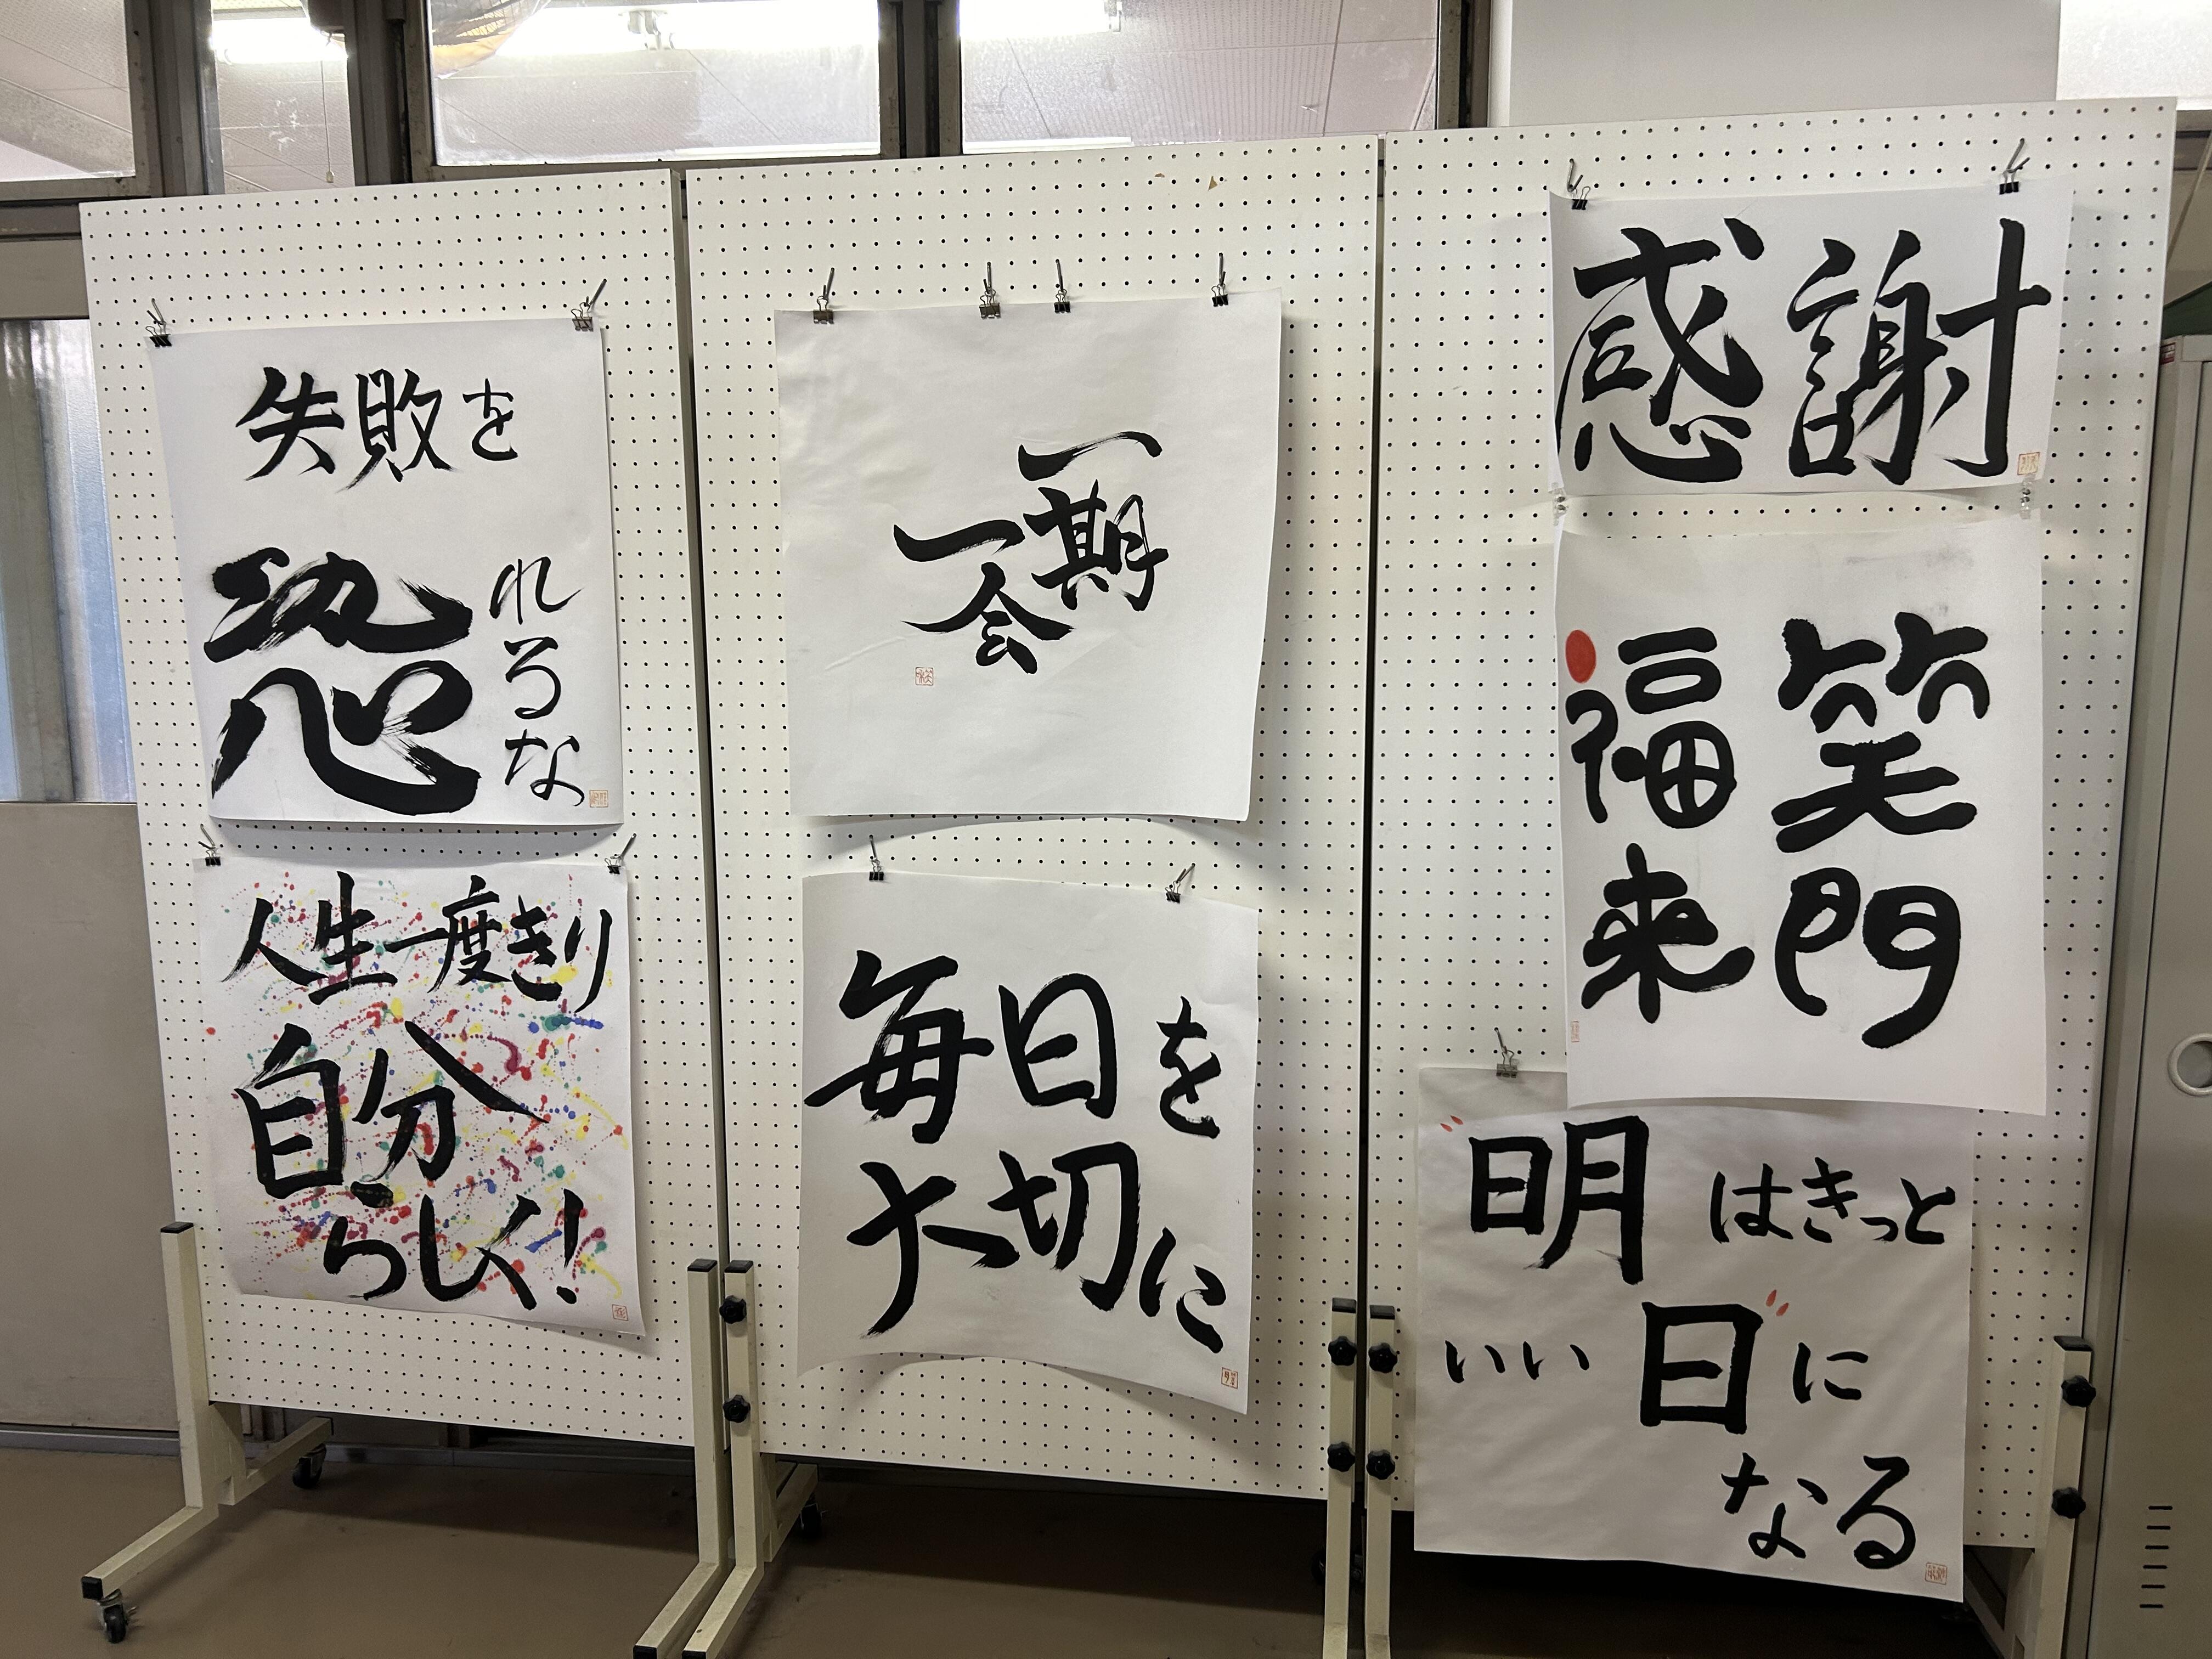 失敗を
恐れるな
人生一度きり
自分
らしく!
一期
一会
毎日を
大切に
感謝
笑門
福来
明日はきっと
いい日に
なる